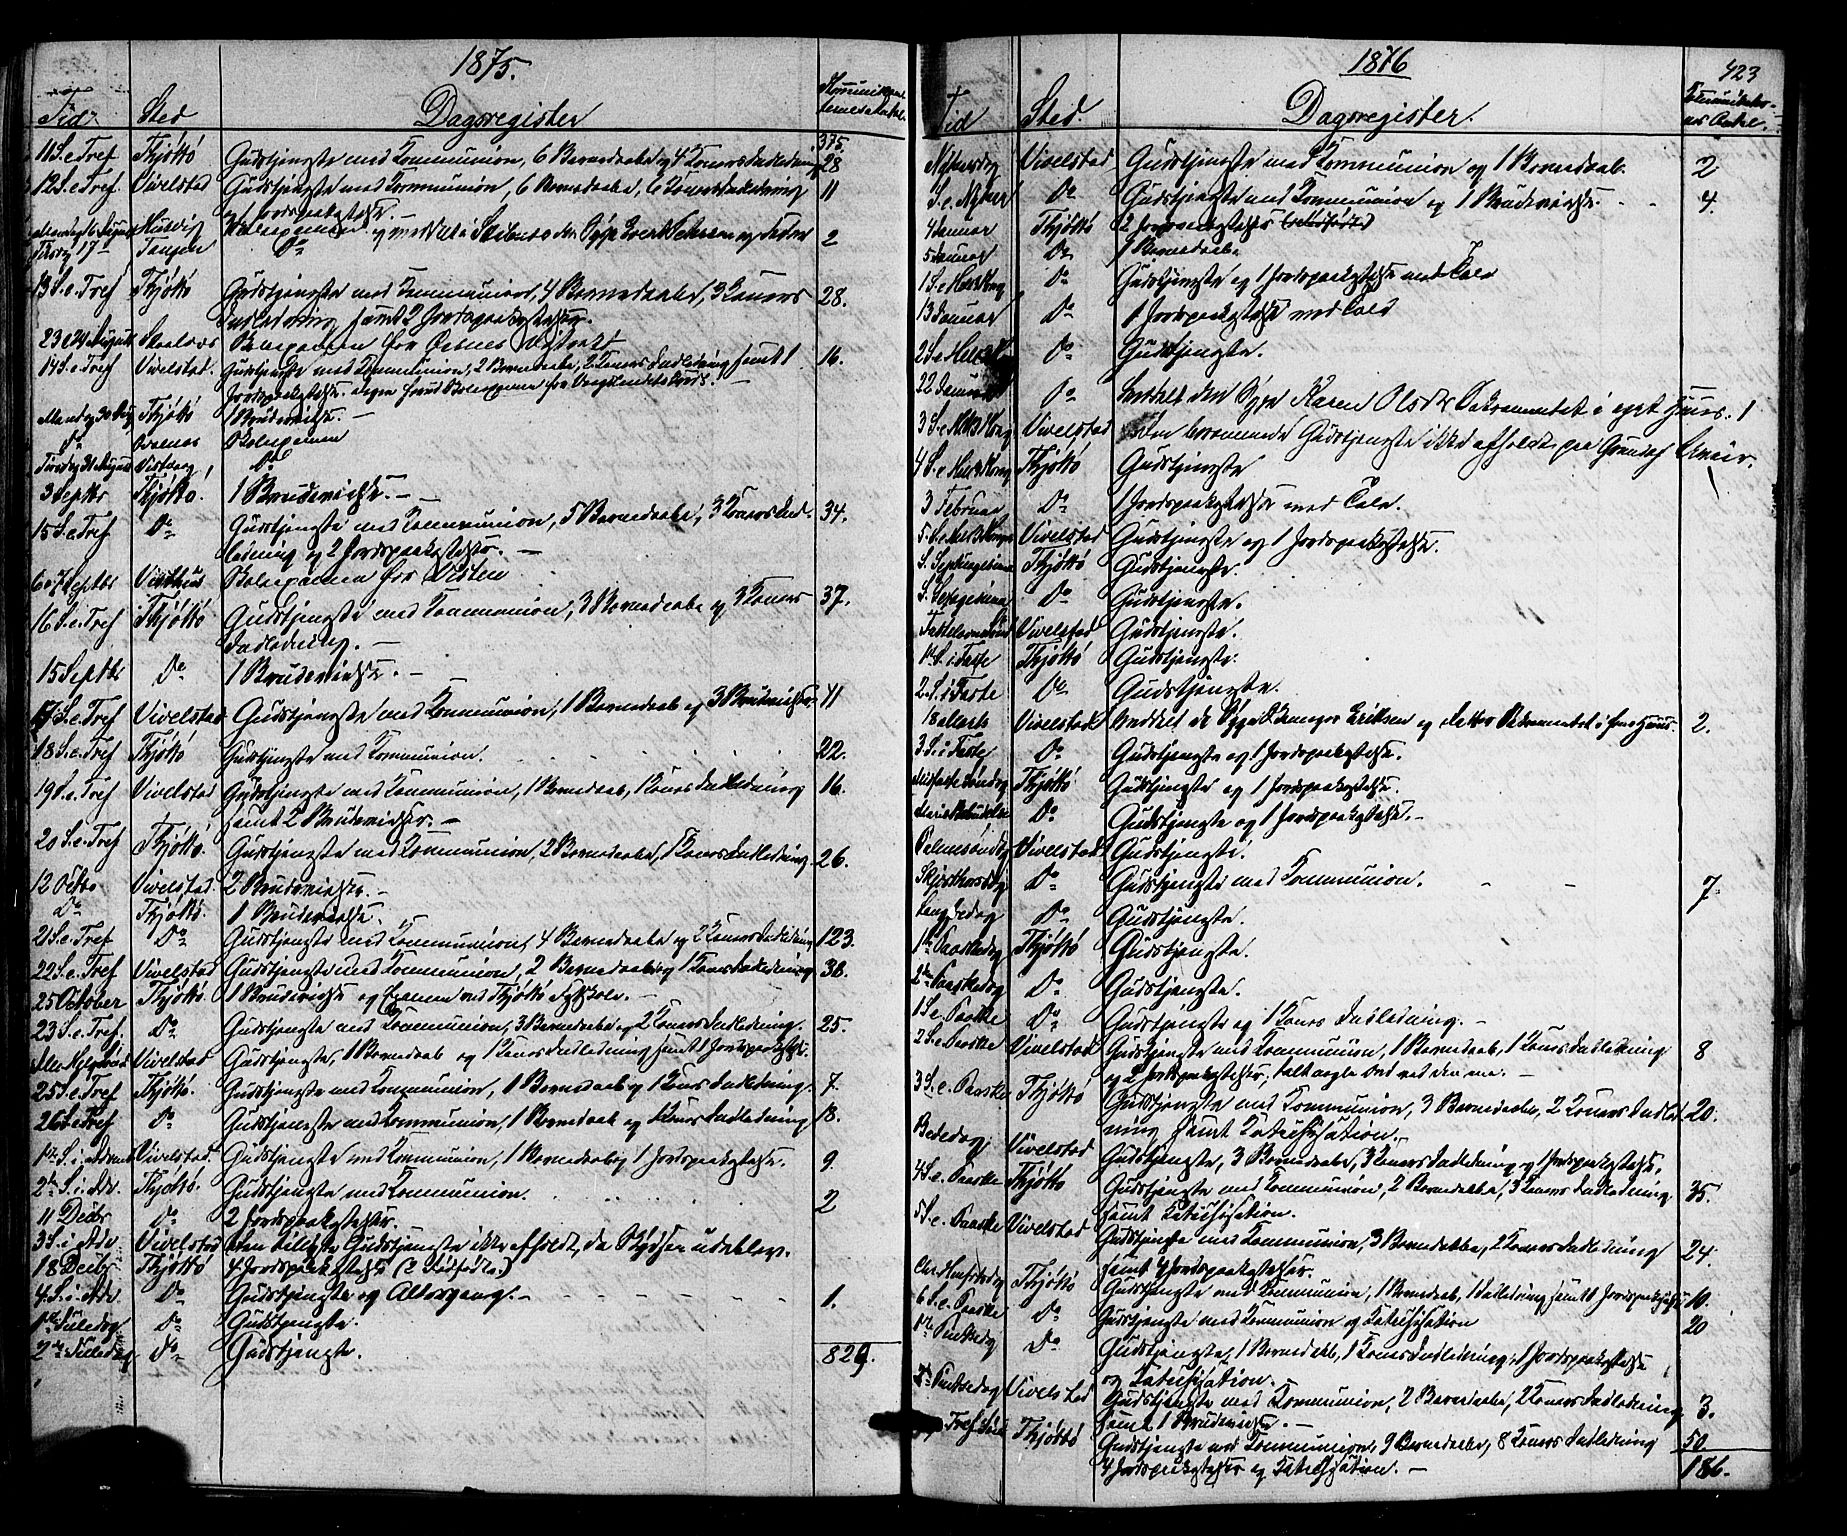 1875.
Tid Sted Dagsregister Kommunikanternes Antal.
375
11 S. e. Tref Thjøttø Gudstjeneste med Kommunion, 6 Barnedaabe og 4 Koners Indledning 28
12 S. e. Tref. Vivelstad Gudstjeneste med Kommunion, 6 Barnedaabe, 6 Koners Indledning 11
og Jordspaakastelse. -
Mandag 16 August Skoleexamen og meddelt 2
Tirsdag 17 - Do
13 S. e. Tref Thjøttø Gudstjeneste med Kommunion, 4 Barnedaabe, 3 Koners 28.
Indledning samt 2 Jordspaakastelser.
23 & 24 August Skoleexamen for District
14 S. e. Tref Vivelstad. Gudstjeneste med Kommunion, 2 Barnedaabe, 2 Koners Indledning samt 1 16.
Jordspaakastelse. Skoleexamen for -
Mandag 30 Aug Thjøttø 1 Brudevielse. -
do Skoleexamen
Tirsdag 31 August Do
3 Septbr Thjøttø. 1 Brudevielse. -
15 S. e. Tref Do Gudstjeneste med Kommunion, 5 Barnedaabe, 3 Koners Ind- 34.
ledning og 2 Jordspaakastelser. -
6 og 7 Septbr Visthus Skoleexamen for Visten
16 S. e. Tref Thjøttø Gudstjeneste med Kommunion, 3 Barnedaabe og 3 Koners 37.
Indledning. -
15 Septbr Do 1 Brudevielse. -
17 S. e. Tref Vivelstad Gudstjeneste med Kommunion, 1 Barnedaab og 3 Brudevielser 11
18 S. e. Tref Thjøttø Gudstjeneste med Kommunion. 22.
19 S. e. Tref Vivelstad Gudstjeneste med Kommunion, 1 Barnedaab, 1 Kones Indledning 16.
samt 2 Brudevielser. -
20 S. e. Tref Thjøttø. Gudstjeneste med Kommunion, 2 Barnedaabe, 1 Kones Indledning. 26.
12 Octbr Vivelstad. 2 Brudevielser. -
Do Thjøttø. 1 Brudevielse.
21 S. e. Tref Do Gudstjeneste med Kommunion, 4 Barnedaabe og 2 Koners Indledning 123.
22 S. e. Tref Vivelstad Gudstjeneste med Kommunion, 2 Barnedaabe og 1 Kones Indledning 38.
25 October Thjøttø. 1 Brudevielse og Examen ved Thjøttø Fastskole. -
23 S. e. Tref. Do Gudstjeneste med Kommunion, 3 Barnedaabe og 2 Koners Indledning. 25.
Alle Helgensd Vivelstad Gudstjeneste, 1 Barnedaab og 1 Kones Indledning samt 1 Jordspaakastelse.
25 S. e. Tref Thjøttø. Gudstjeneste med Kommunion, 1 Barnedaab og 1 Kones Indledning. 7.
26 S. e. Tref Do Gudstjeneste med Kommunion, 1 Barnedaab og 1 Kones Indledning 18.
1ste S. i Advent Vivelstad. Gudstjeneste med Kommunion, 1 Barnedaab og 1 Jordspaakastelse. 9.
2den S. i. Adv. Thjøttø. Gudstjeneste med Kommunion. 2
11 Decbr Do 2 Jordspaakastelser.
3 S. i Adv Vivelstad Den tillyste Gudstjeneste ikke afholdt, da Skydsen udeblev.
18 Decbr Thjøttø 4 Jordspaakastelser (2 dødfødte.)
4. S. i. Adv. Do Gudstjeneste og Altergang. - 1.
1ste Juledag Do Gudstjeneste.
2den Juledag Do Gudstjeneste. 829.
1876
423
Tid Sted Dagsregister. Kommunikanternes Antal.
Nytaarsdag Vivelstad Gudstjeneste med Kommunion og 1 Barnedaab. 2
S. e. Nytaar Do Gudstjeneste med Kommunion og 1 Brudevielse. - - 4.
4 Januar Thjøttø 2 Jordspaakastelser
5 Januar Do 1 Barnedaab.
1 S. e. Hell. 3 Kong Do Gudstjeneste og 1 Jordspaakastelse med Tale
13 Januar Do 1 Jordspaakastelse med Tale
2 S. e. Hell. 3 Kong Do Gudstjeneste.
22 Januar Do Meddelt den Syge Karen Olsdtr Sakramentet i eget Huus. 1
3 S. e. Hell. 3 Kong Vivelstad Den berammede Gudstjeneste ikke afholdt paa Grund af Uveir.
4 S. e. Hell. 3 Kong Thjøttø Gudstjeneste
3 Februar Do 1 Jordspaakastelse med Tale.
5. S. e. Hell. 3 Kong Vivelstad Gudstjeneste og 1 Jordspaakastelse.
S. Septuagesima Thjøttø Gudstjeneste.
S. Sexagesima Do Gudstjeneste.
Fastelavnssønd Vivelstad Gudstjeneste.
1ste S. i Faste Thjøttø Gudstjeneste.
2. S. i Faste Do Gudstjeneste.
18 Marts Vivelstad Meddelt de Syge Eriksen og Datter Sakramentet i Huus. 2.
3 S. i Faste Do Gudstjeneste og 1 Jordspaakastelse.
Midfastesøndag Thjøttø Gudstjeneste og 1 Jordspaakastelse.
Mariæ Bebudelse Do Gudstjeneste og 1 Jordspaakastelse. -
Palmesøndag Vivelstad Gudstjeneste.
Skjærthorsdag Do Gudstjeneste med Kommunion. - - 7.
Langfredag Do Gudstjeneste.
1ste Paaskedag Thjøttø Gudstjeneste.
2den Paaskedag Do Gudstjeneste.
1 S. e. Paaske Do Gudstjeneste og 1 Kones Indledning. -
2 S. e. Paaske Vivelstad Gudstjeneste med Kommunion, 1 Barnedaab, 1 Kones Indledning 8
og 2 Jordspaakastelser, talt nogle Ord ved den ene. -
3 S. e. Paaske Thjøttø Gudstjeneste med Kommunion, 3 Barnedaabe, 2 Koners Indled- 20.
ning samt Katechisation. -
Bededag Vivelstad Gudstjeneste, 3 Barnedaabe, 3 Koners Indledning og 1 Jordspaakastelse.
4 S. e. Paaske Thjøttø Gudstjeneste med Kommunion, 2 Barnedaabe, 3 Koners Indledning 35.
samt Katechisation.
5 S. e. Paaske Vivelstad Gudstjeneste med Kommunion, 3 Barnedaabe, 2 Koners Indledning 24.
samt 4 Jordspaakastelser.
Chr. Himfartsdag Thjøttø Gudstjeneste med Kommunion, 1 Barnedaab, 1 Indledning samt 1 Jordspaakastelse 10.
6. S. e. Paaske Do Gudstjeneste med Kommunion og Katechisation 20
1ste Pintsedag Do Gudstjeneste, 1 Barnedaab, 1 Kones Indledning, 1 Jordspaakastelse
og Katechisation. -
2den Pintsedag Vivelstad Gudstjeneste med Kommunion, 2 Barnedaabe, 2 Koners Indledning 3.
samt 1 Brudevielse. -
Tref. Sønd Thjøttø Gudstjeneste med Kommunion, 9 Barnedaabe, 8 Koners Indledning 50
4 Jordspaakastelser og Katechisation. - 186.